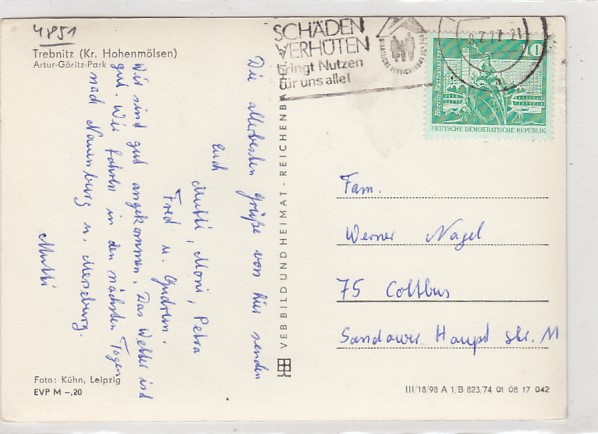 4851
Trebnitz (Kr. Hohenmölsen)
Artur-Göritz-Park
SCHÄDEN
VERHÜTEN
bringt Nutzen
für uns alle!
10
DEUTSCHE DEMOKRATISCHE REPUBLIK
Die allerbesten Grüße von hier senden
Euch
Mutti, Moni, Petra
Fred u. Gudrun.
Wir sind gut angekommen. Das Wetter ist
gut. Wir fahren in den nächsten Tagen
nach Naumburg u. Merseburg.
Mutti
VEB BILD UND HEIMAT · REICHENBACH
Fam.
Werner Nagel
75 Cottbus
Sandower Haupt str. 11
Foto: Kühn, Leipzig
EVP M –,20
III/18/98 A 1/B 823/74 01 08 17 042